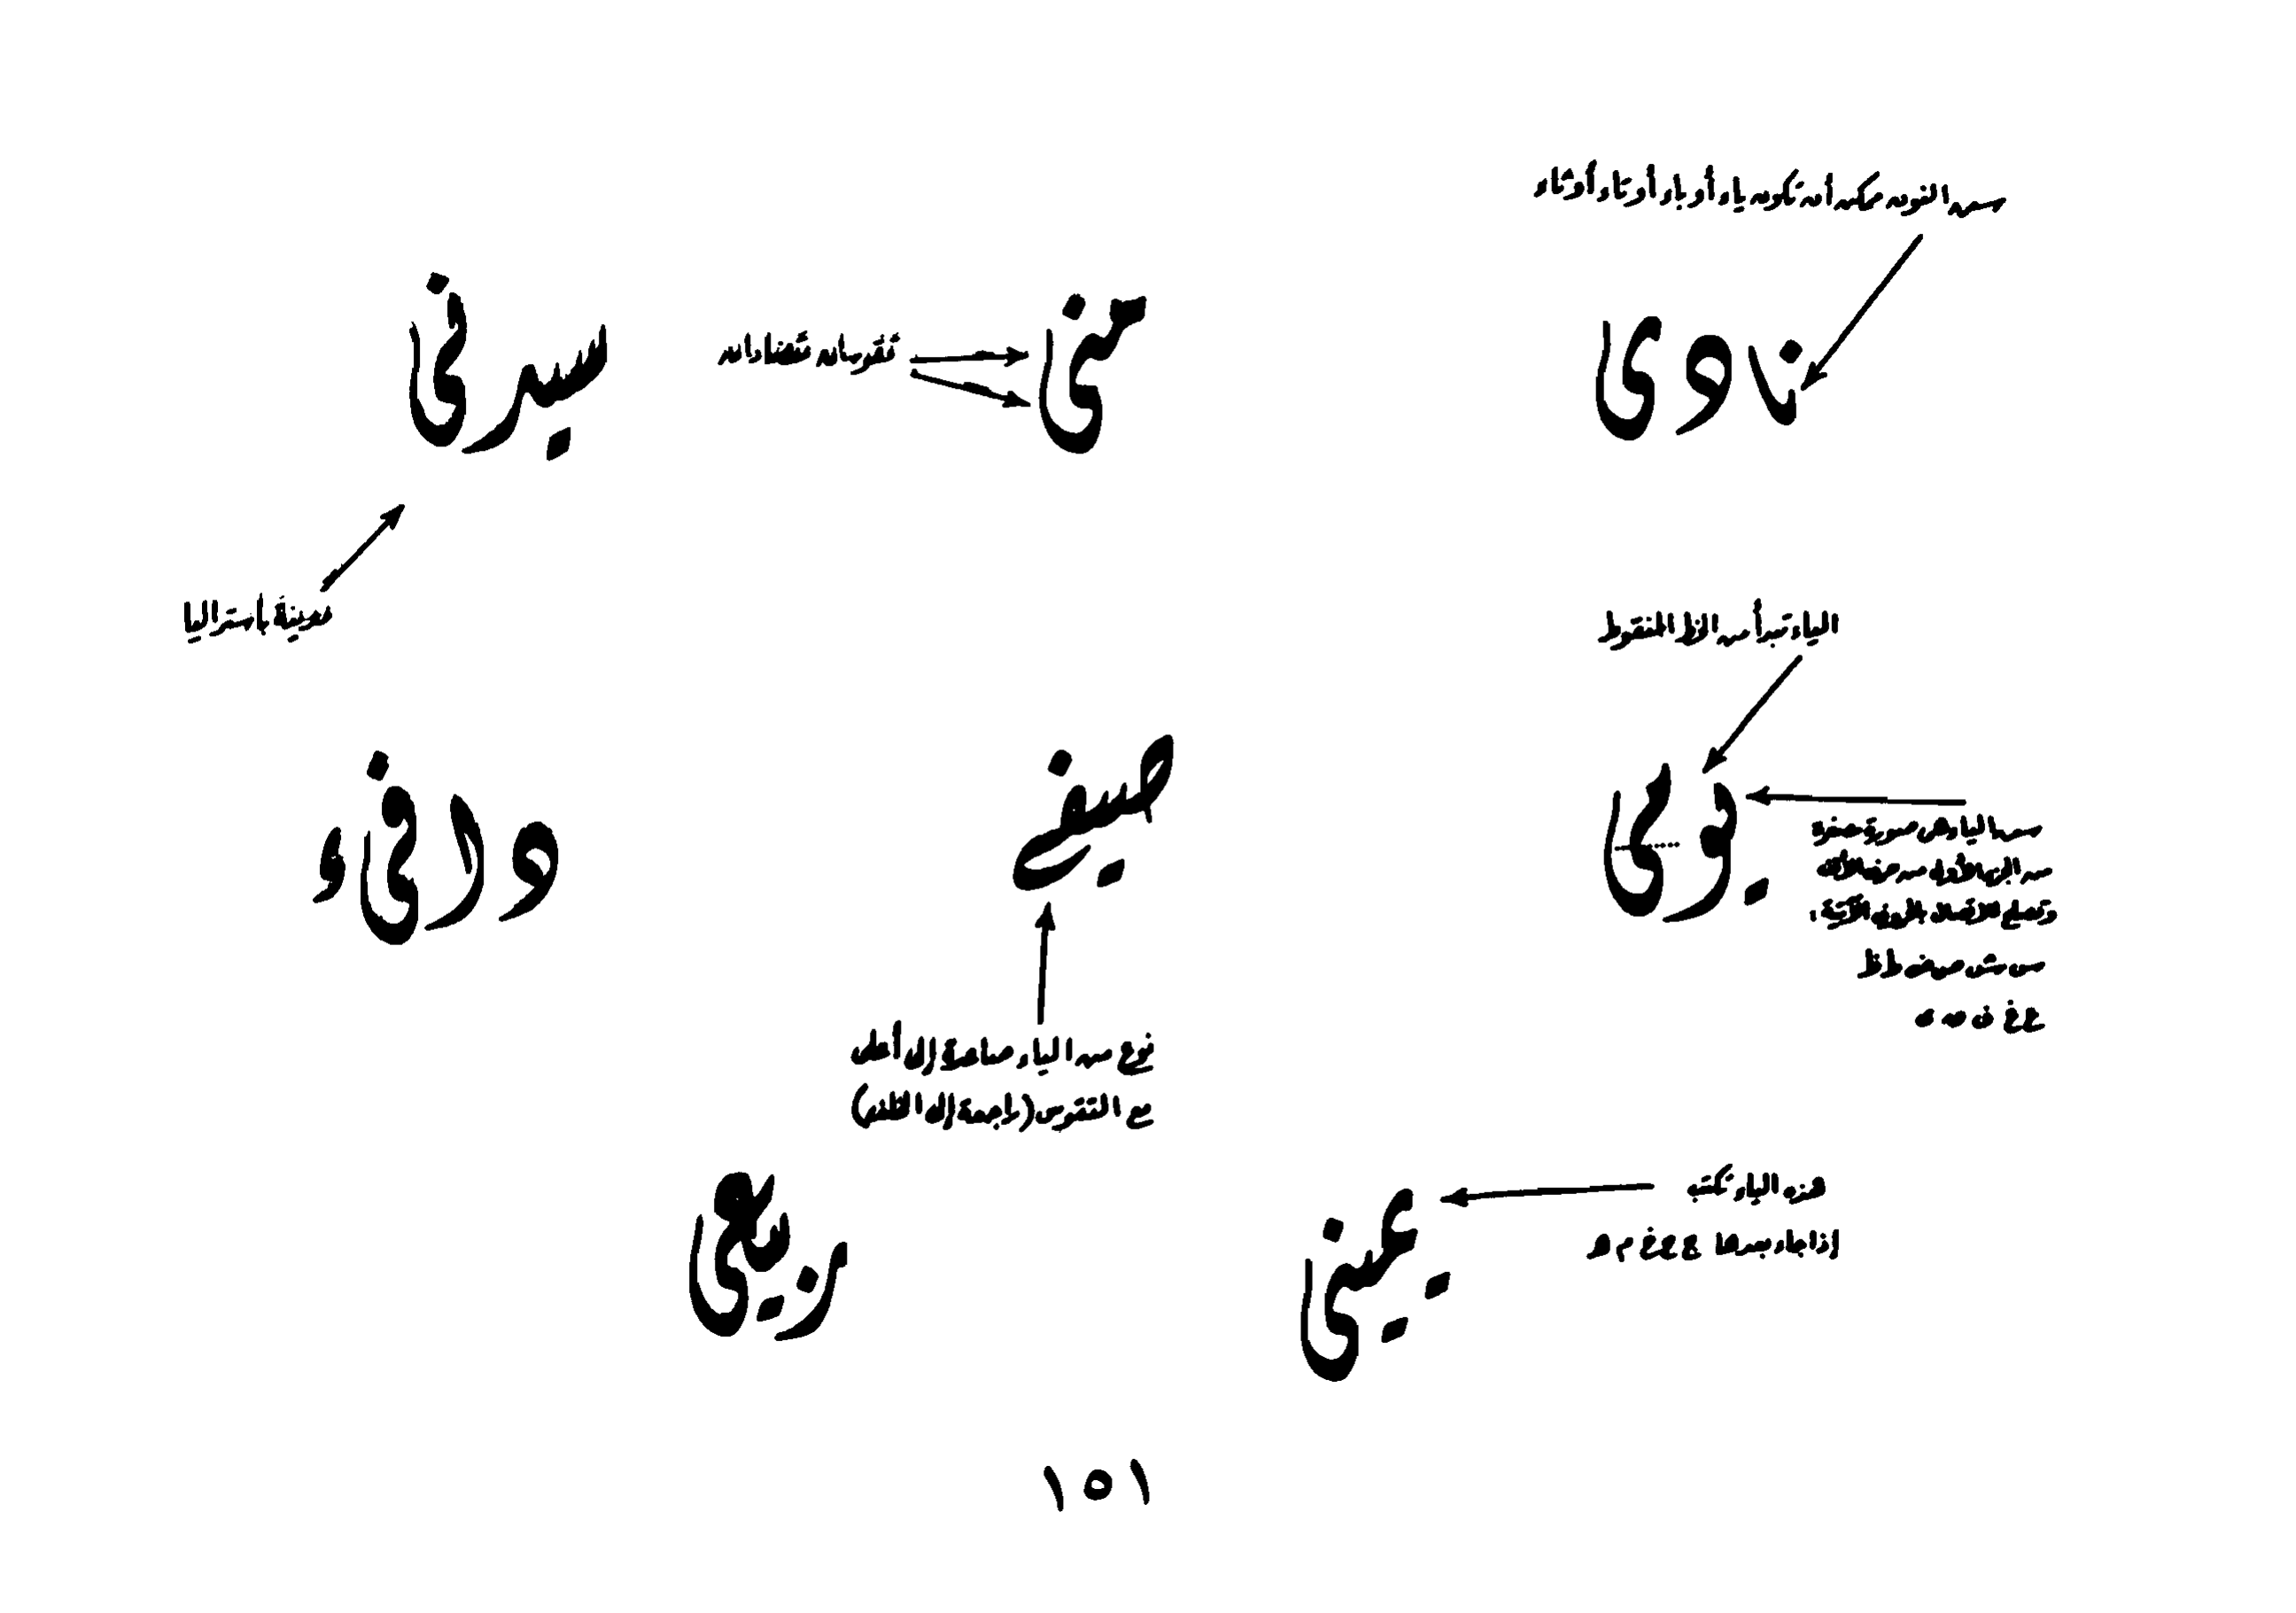 سن النون يمكن أن تكون ياء أو باء أو تاء أو ثاء
نادى
منى
تقوسان متضادان
سيدنى
مدينة بأستراليا
الياء تبدأ من الخط المنقوط
يومى
سن الياء هى صورة مصغرة
من الجزء الأول من حرف الألف
وتصلح للاتصال بالحروف الآتية:
س ش ص ض ط ظ
ع غ ف ن ه
صيفى
نوع من الياء صاعدة إلى أعلى
مع التقوس (راجعة إلى الخلف)
وافى
هذه الياء تكتب
إذا جاء بعدها ح ع غ م ه
يمينى
ربيعى
١٥١